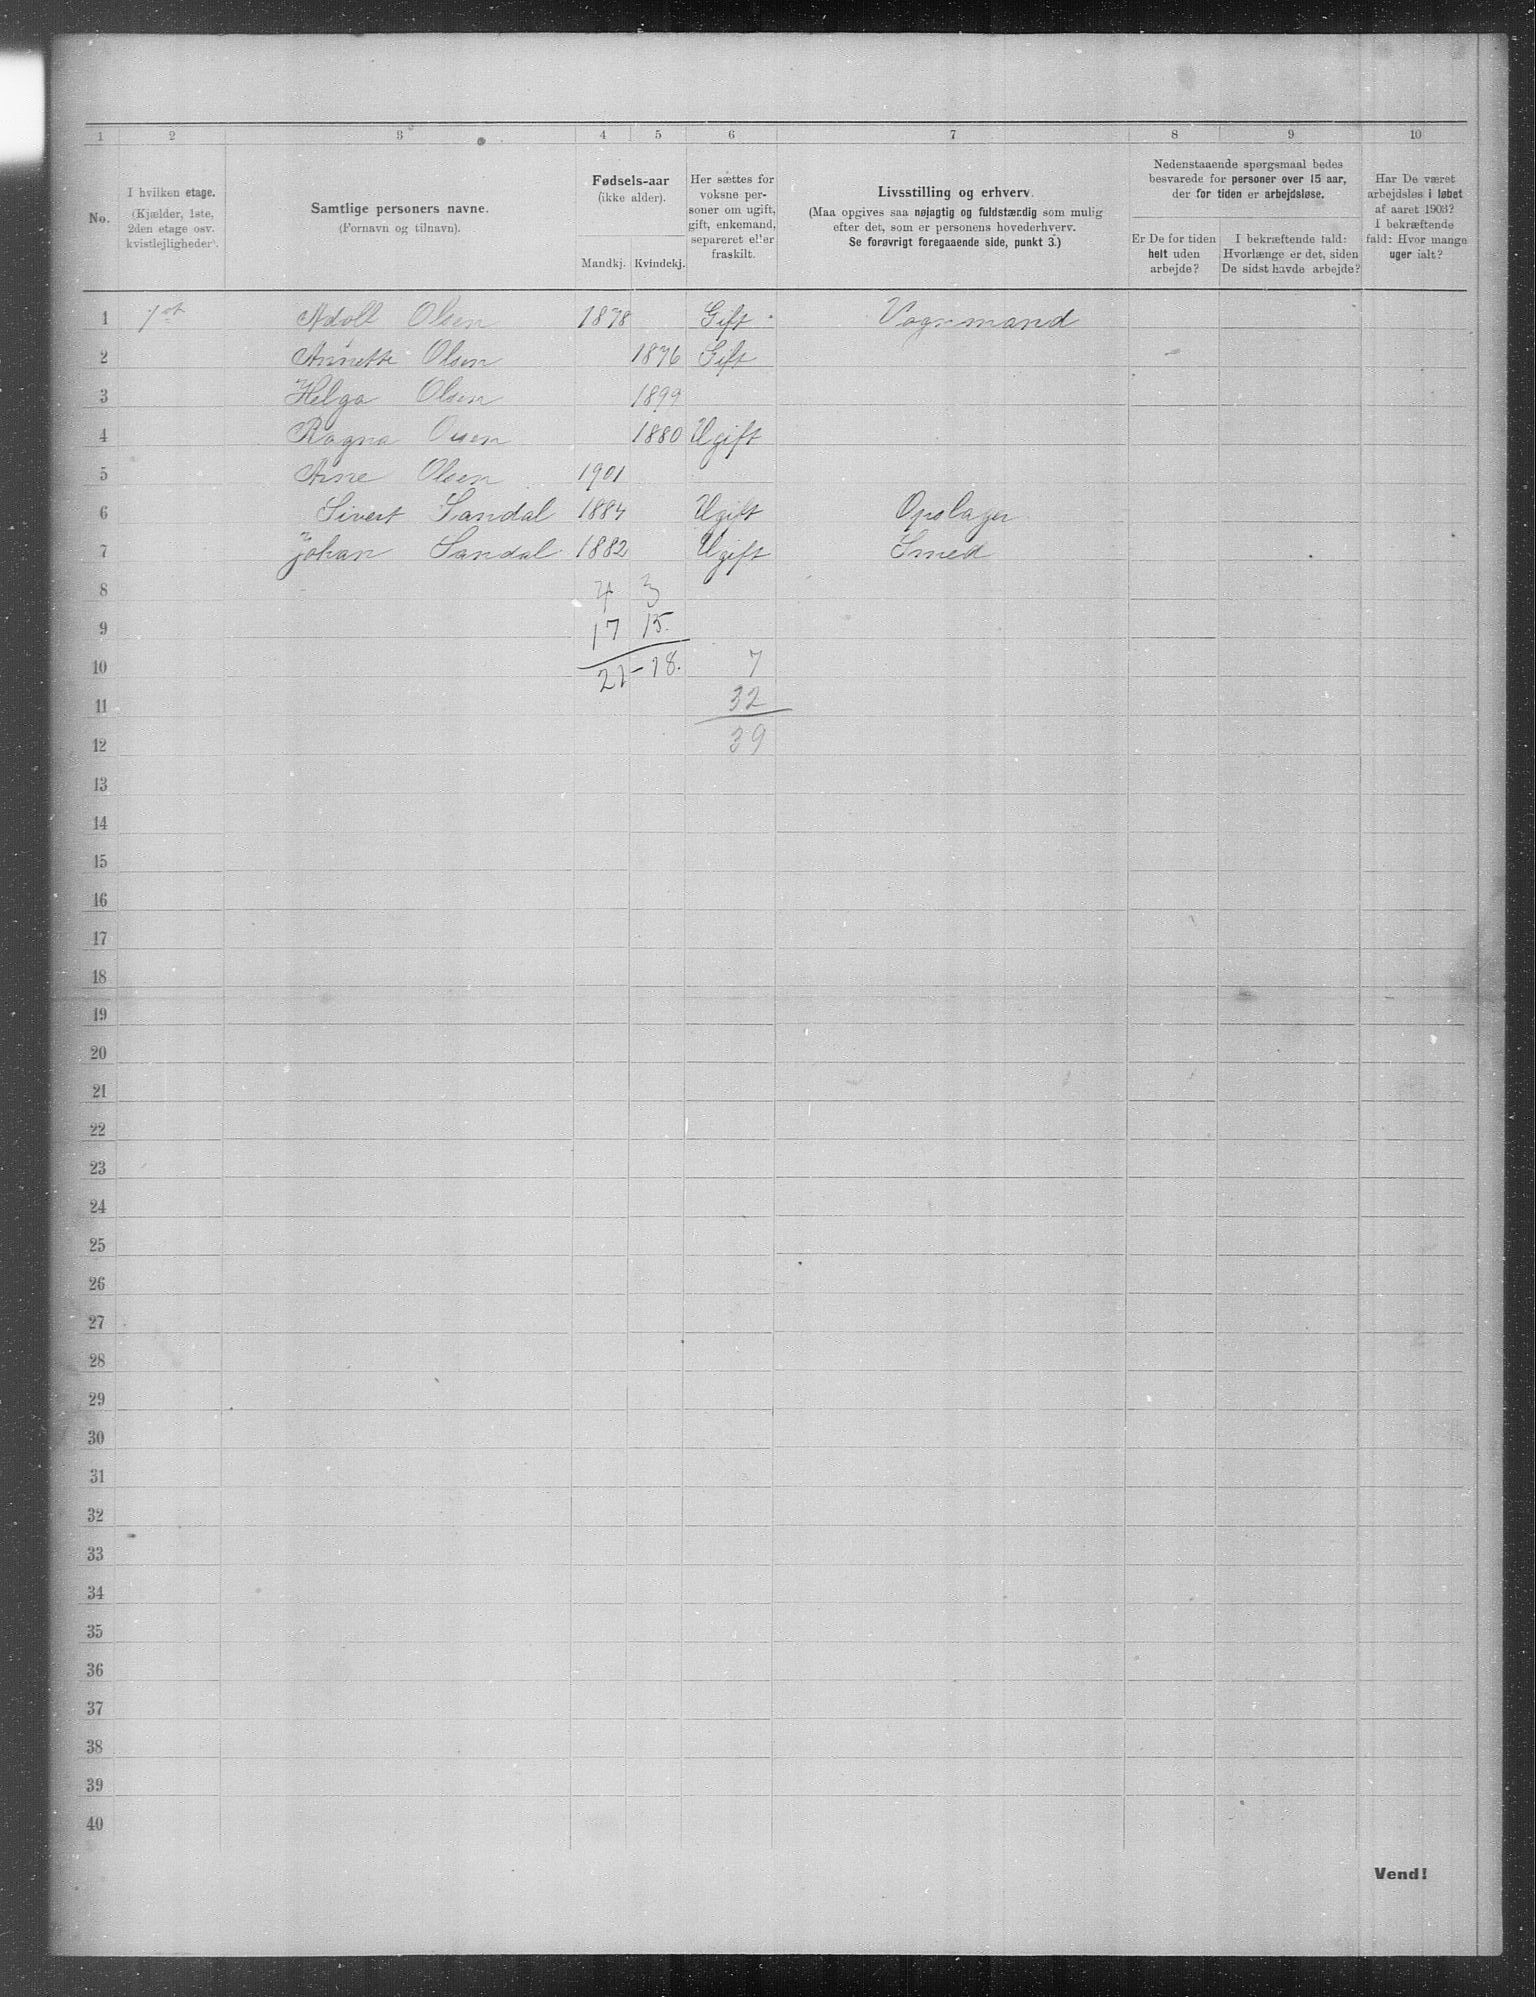 1 2 3 4 5 6 7 8 9 10
No.
I hvilken etage.
(Kjælder, 1ste,
2den etage osv.
kvistlejligheder).
Samtlige personers navne.
(Fornavn og tilnavn).
Fødsels-aar
(ikke alder).
Mandkj. Kvindekj.
Her sættes for
voksne per-
soner om ugift,
gift, enkemand,
separeret eller
fraskilt.
Livsstilling og erhverv.
(Maa opgives saa nøjagtig og fuldstændig som mulig
efter det, som er personens hovederhverv.
Se forøvrigt foregaaende side, punkt 3.)
Nedenstaaende spørgsmaal bedes
besvarede for personer over 15 aar,
der for tiden er arbejdsløse.
Er De for tiden
helt uden
arbejde?
I bekræftende fald:
Hvorlænge er det, siden
De sidst havde arbejde?
Har De været
arbejdsløs i løbet
af aaret 1903?
I bekræftende
fald: Hvor mange
uger ialt?
1 1st Adolf Olsen 1878 Gift Vognmand
2 Annette Olsen 1876 Gift
3 Helga Olsen 1899
4 Ragna Olsen 1880 Ugift
5 Arne Olsen 1901
6 Sivert Sandal 1884 Ugift
7 Johan Sandal 1882 Ugift Smed
8 4 3
9 17 15.
10 21-18. 7
11 32
12 39
13
14
15
16
17
18
19
20
21
22
23
24
25
26
27
28
29
30
31
32
33
34
35
36
37
38
39
40
Vend!